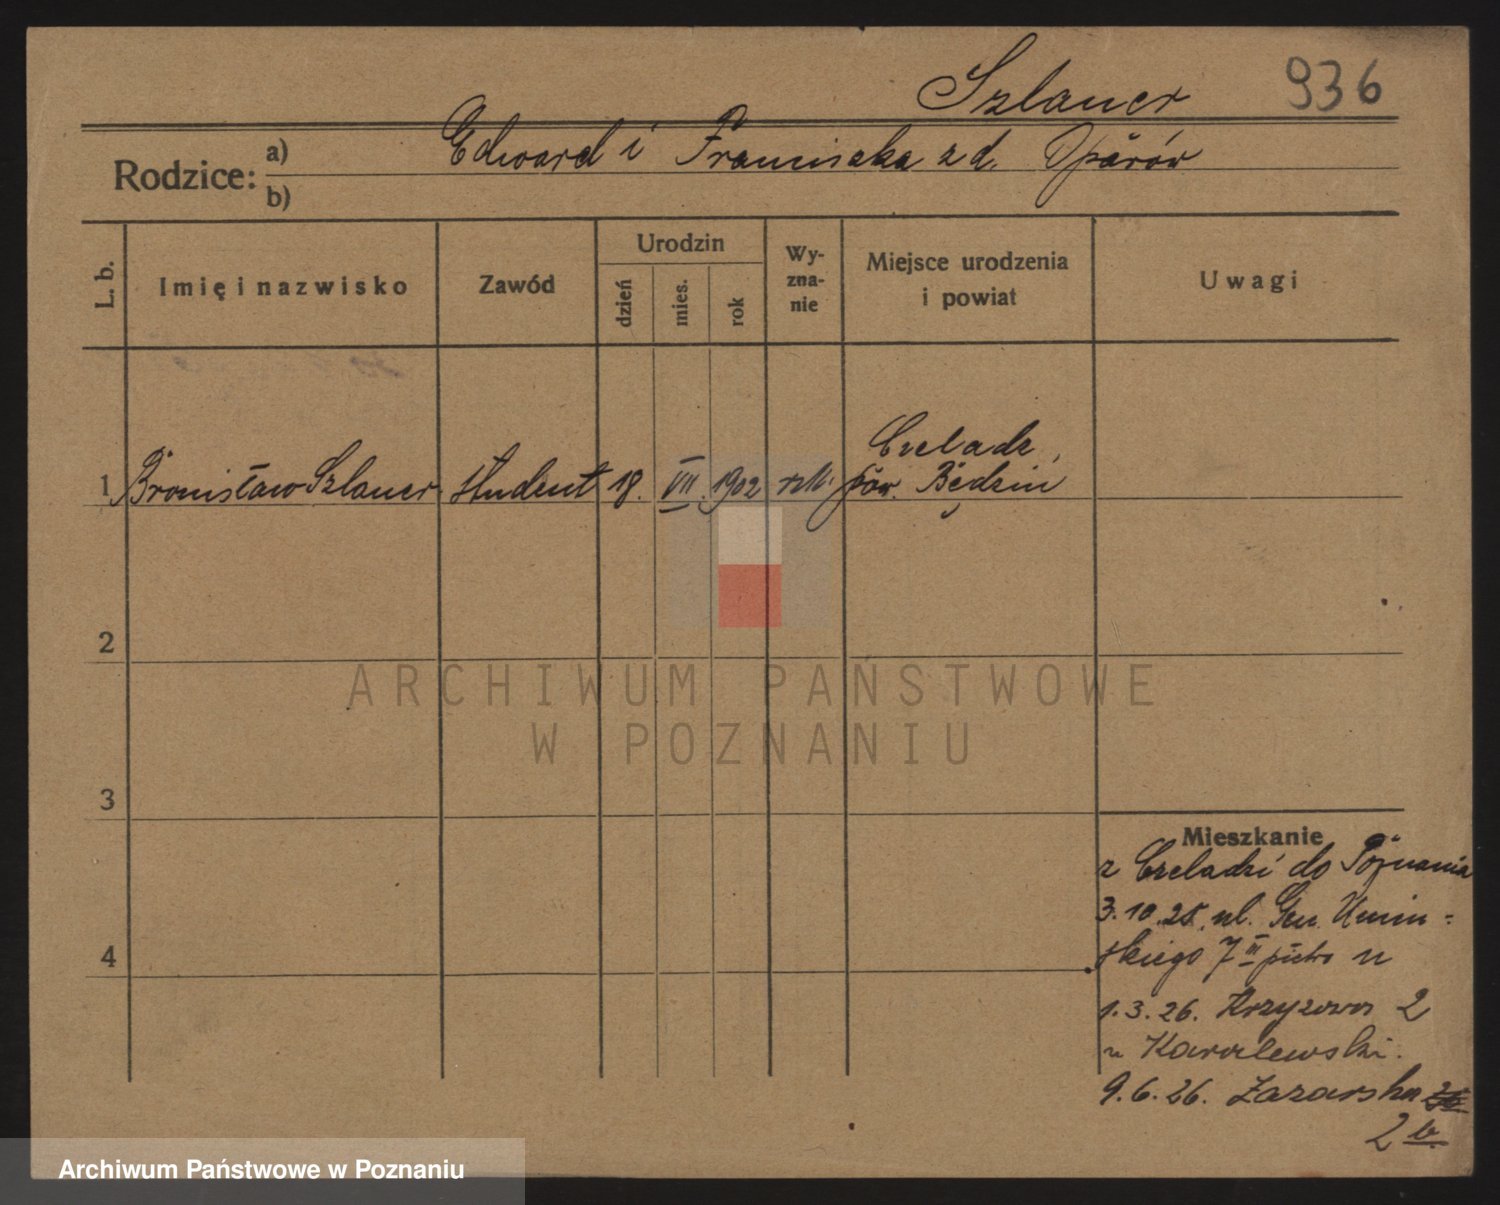 Szlauer 936
Rodzice: a) Edward i Franciszka z d. Oparów
b)
L. b. Imię i nazwisko Zawód Urodzin dzień mies. rok Wy-zna-nie Miejsce urodzenia i powiat Uwagi
Czeladź,
1 Bronisław Szlauer student 18. VII. 1902 rzk. pow. Będzin
2
ARCHIWUM PAŃSTWOWE
W POZNANIU
3
Mieszkanie
z Czeladzi do Poznania
3.10.25. ul. Gen. Umiń-
4
skiego 7 III piętro u
1.3.26. Krzyżowa 2
u Karolewski.
9.6.26. Łazarska
2 b.
Archiwum Państwowe w Poznaniu